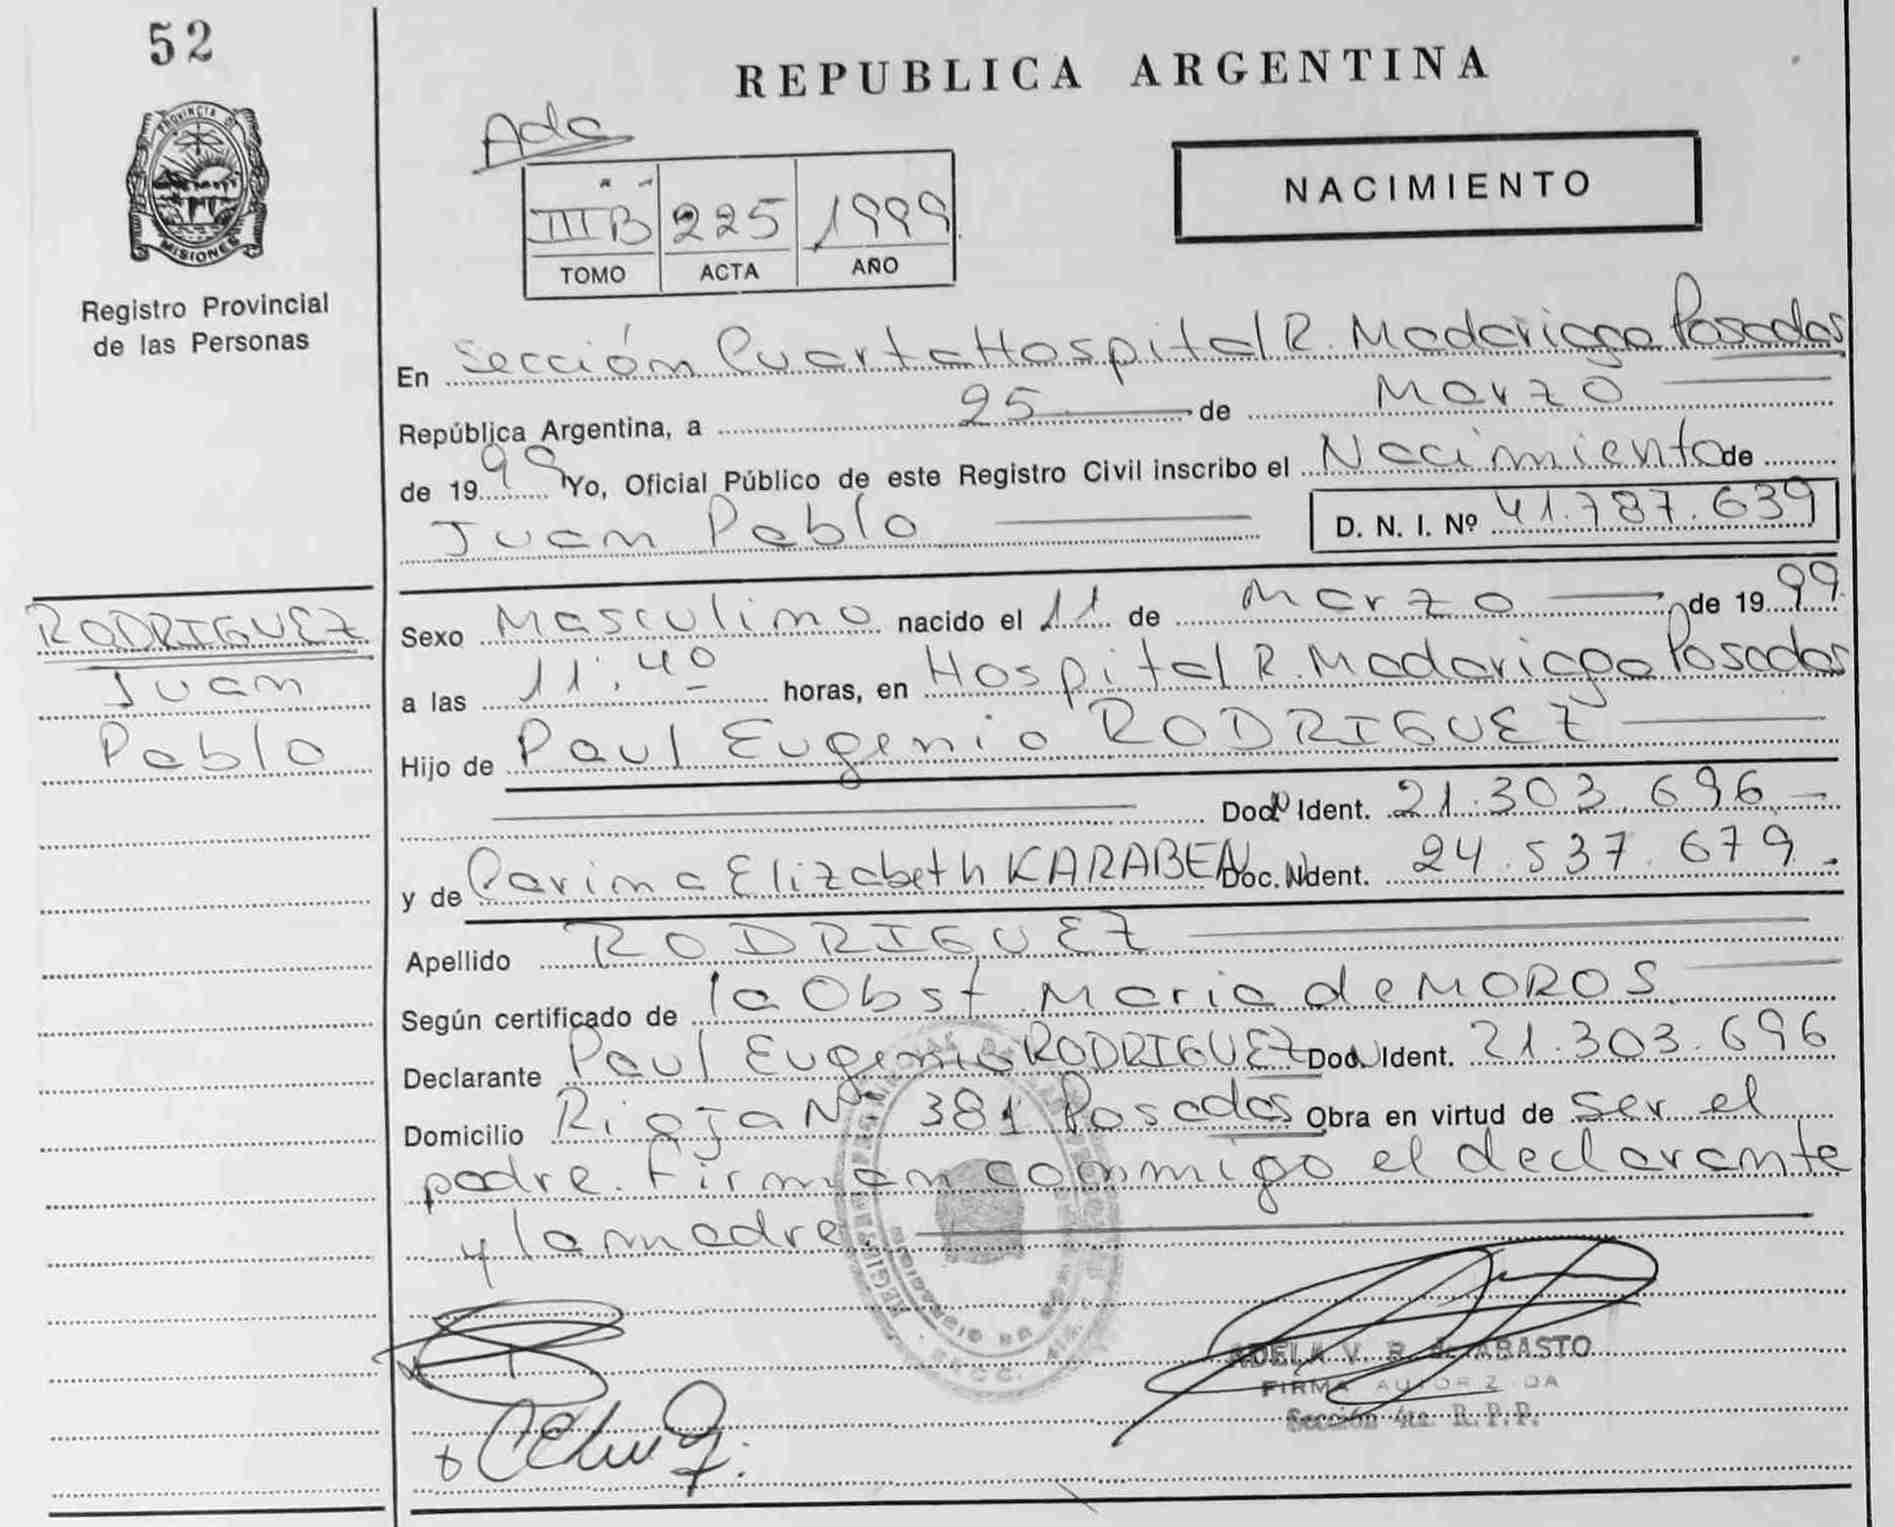 52
REPUBLICA ARGENTINA
PROVINCIA DE
MISIONES
Registro Provincial
de las Personas
NACIMIENTO
III B 225 1999
TOMO ACTA AÑO
En Sección Cuarta Hospital R. Madariaga Posadas
República Argentina, a 25 de Marzo
de 1999 Yo, Oficial Público de este Registro Civil inscribo el Nacimiento de
Juan Pablo D. N. I. Nº 41.787.639
RODRIGUEZ
Juan
Pablo
Sexo Masculino nacido el 11 de Marzo de 1999
a las 11:40 horas, en Hospital R. Madariaga Posadas
Hijo de Paul Eugenio RODRIGUEZ
Doc. Ident. 21.303.696
y de Carina Elizabeth KARABEN Doc. Ident. 24.537.679
Apellido RODRIGUEZ
Según certificado de la Obst. Maria de MOROS
Declarante Paul Eugenio RODRIGUEZ Doc. Ident. 21.303.696
Domicilio Rioja Nº 381 Posadas Obra en virtud de ser el
padre. Firman conmigo el declarante
y la madre
ADELA V. ABASTO
FIRMA AUTORIZADA
Sección 4ta. R.P.P.